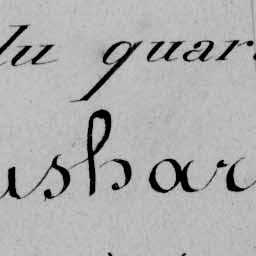 du quar
ushar